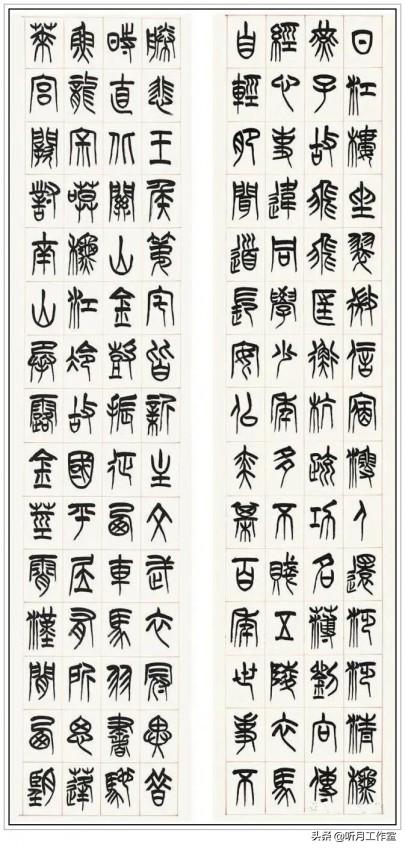 日江樓坐翠微信宿漁人還汎汎清秋
燕子故飛飛匡衡抗疏功名薄劉向傳
經心事違同學少年多不賤五陵衣馬
自輕肥聞道長安似奕棋百年世事不
勝悲王侯第宅皆新主文武衣冠異昔
時直北關山金鼓振征西車馬羽書馳
魚龍寂寞秋江冷故國平居有所思蓬
萊宮闕對南山承露金莖霄漢間西望
头条 @听月工作室